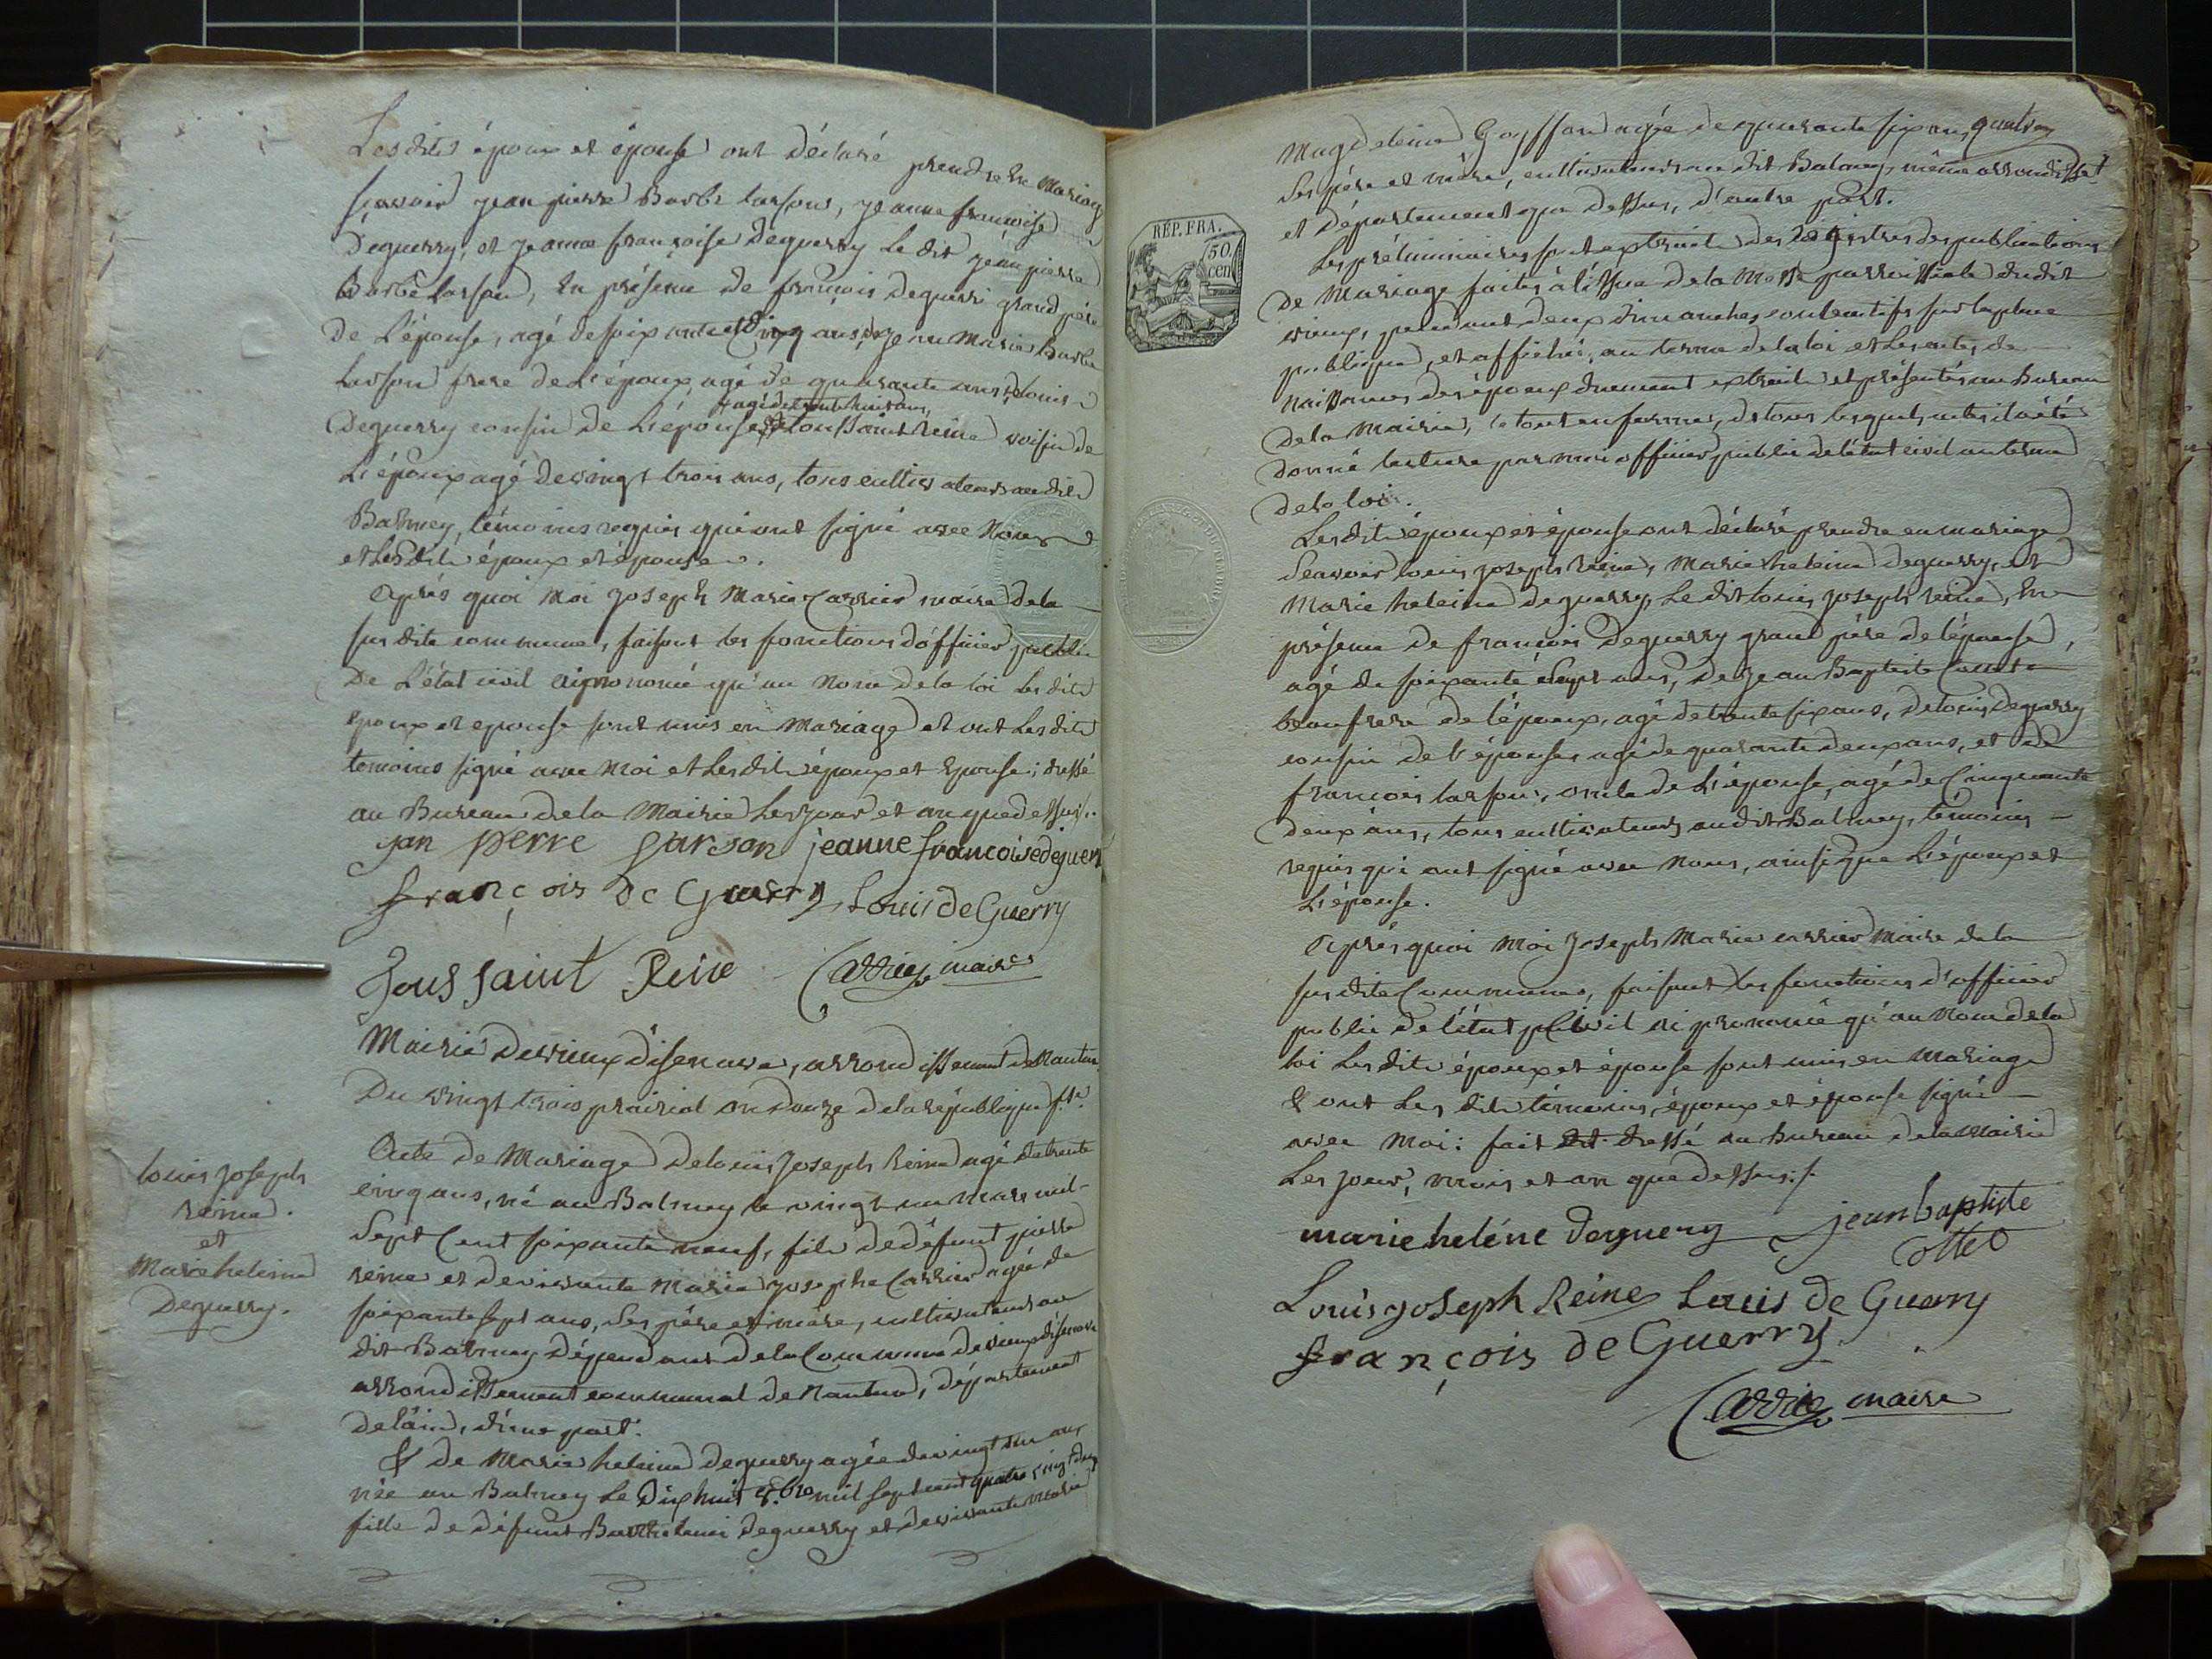 Lesdits époux et épouse ont déclaré prendre en mariage
sçavoir jean pierre Barbe larson, jeanne françoise
Deguerry, et jeanne françoise deguerry le dit jean pierre
Barbe larson, en présence de françois deguerri grand père
de L'épouse, agé de soixante et cinq ans, de jean Marie Barbe
larson frere de L'époux agé de quarante ans, de louis
+ agé de trente huit ans,
Deguerry cousin de L'épouse, + de toussaint reine voisin de
L'époux agé de vingt trois ans, tous cultivateurs audit
Balmey, témoins requis qui ont signé avec Nous
et Lesdits époux et épouse.
Après quoi Moi Joseph Marie Carrier maire de la
susdite commune, faisant les fonctions d'officier public
De L'état civil ai prononcé qu'au Nom de la loi Lesdits
époux et epouse sont unis en Mariage et ont Lesdits
temoins signé avec Moi et Lesdits époux et Epouse; dressé
au Bureau de la Mairie Les jour et an que dessus.
jan pierre larson jeanne francoise deguerr
françois de Guerry Louis de Guerry
Toussaint Reine Carrier maire
Mairie de vieux d'isenave, arrondissement de Nantua
Du vingt trois prairial an douze de la république f.se
louis joseph
reine
et
Marie heleine
Deguerry.
Acte de Mariage de louis Joseph Reine agé de trente
cinq ans, né au Balmey le vingt un mars mil
Sept Cent soixante neuf, fils de défunt pierre
reine et de vivante Marie josephe Carrier agée de
soixante sept ans, Ses père et mère, cultivateurs au
dit Balmey dépendant de la Commune de vieux d'isenave
arrondissement communal de Nantua, département
de l'ain, d'une part.
& de Marie heleine deguerry agée de vingt un ans
née au Balmey Le Dix huit 8.bre mil sept cent quatre vingt deux
fille de défunt Barthelemi deguerry et de vivante Marie
Magdeleine Goyffon agée de quarante six ans,
Ses père et mère, cultivateurs au dit Balmey, même arrondisse.t
et département que dessus, d'autre part.
RÉP. FRA.
50.
cen
Les préliminaires sont extraits des registres des publications
De Mariage faites à l'issue de la Messe parroissiale dudit
vieux, pendant deux dimanches consécutifs sur la place
publique, et affichées, au terme de la loi et Les actes de
naissances des époux duement extraits et présentés au Bureau
de la Mairie, le tout en forme, de tous lesquels actes il a été
donné lecture par moi officier public de l'état civil au terme
de la loi.
Lesdits époux et épouse ont déclaré prendre en mariage
Scavoir louis joseph reine, Marie heleine deguerry, et
Marie heleine deguerry, Le dit louis joseph reine, En
présence de françois Deguerry grand père de l'épouse,
agé de soixante Sept ans, de jean Baptiste Cottet
beaufrere de l'époux, agé de trente six ans, de louis Deguerry
cousin de l'épouse, agé de quarante deux ans, et de
françois larson, oncle de L'épouse, agé de Cinquante
deux ans, tous cultivateurs audit Balmey, témoins
requis qui ont signé avec nous, ainsi que L'époux et
L'épouse.
Après quoi Moi Joseph Marie carrier Maire de la
susdite Commune, faisant les fonctions d'officier
public de l'état Civil ai prononcé qu'au Nom de la
loi Lesdits époux et épouse sont unis en Mariage
& ont Lesdits témoins, époux et épouse signé
avec Moi: fait dressé au Bureau de la Mairie
Les jour, mois et an que dessus ./.
marie heléne deguerry jean baptiste
cottet
Louis joseph Reine Louis de Guerry
françois de Guerry
Carrier maire